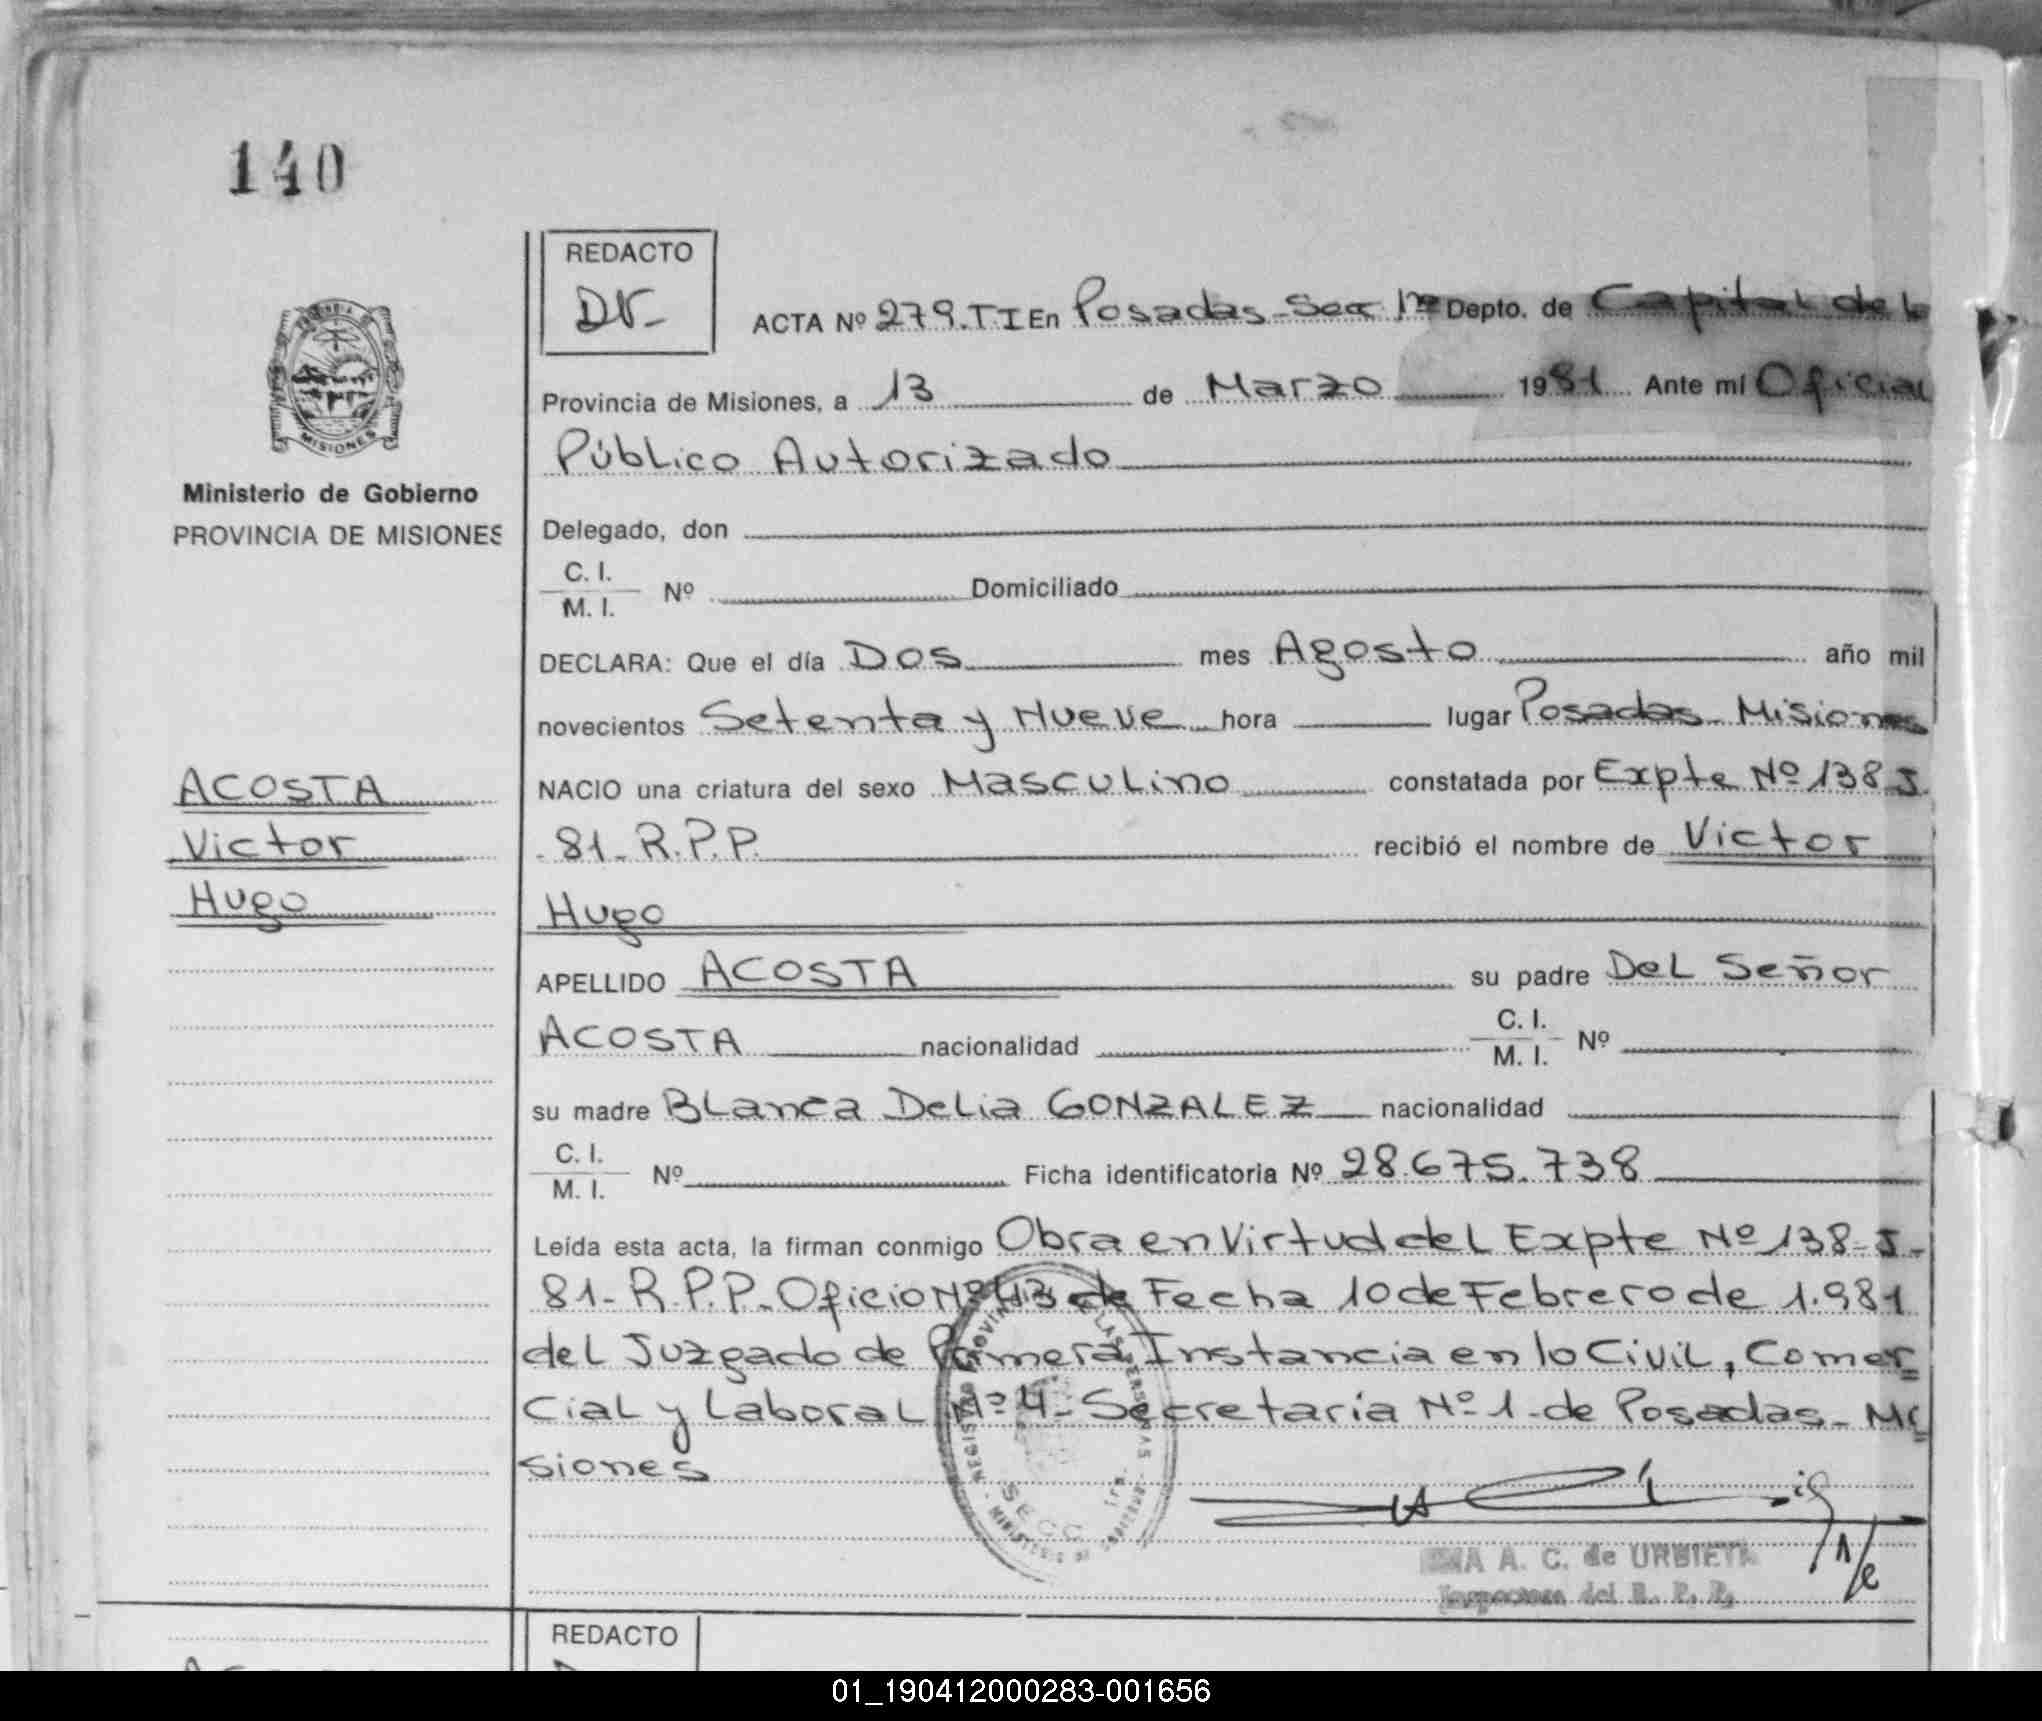 140
REDACTO
DV-
ACTA Nº 279.TI En Posadas-Sec 1ra Depto. de Capital de la
Provincia de Misiones, a 13 de Marzo 1981 Ante mí Oficial
Público Autorizado
MISIONES
Ministerio de Gobierno
PROVINCIA DE MISIONES
Delegado, don
C. I.
M. I. Nº Domiciliado
DECLARA: Que el día Dos mes Agosto año mil
novecientos Setenta y Nueve hora lugar Posadas Misiones
ACOSTA
Victor
Hugo
NACIO una criatura del sexo Masculino constatada por Expte Nº 138-J.
-81-R.P.P. recibió el nombre de Victor
Hugo
APELLIDO ACOSTA su padre Del Señor
ACOSTA nacionalidad C. I.
M. I. Nº
su madre Blanca Delia GONZALEZ nacionalidad
C. I.
M. I. Nº Ficha identificatoria Nº 28.675.738
Leída esta acta, la firman conmigo Obra en Virtud del Expte Nº 138-J-
81-R.P.P. Oficio Nº 43 de Fecha 10 de Febrero de 1.981
del Juzgado de Primera Instancia en lo Civil, Comer
cial y Laboral Nº 4- Secretaria Nº 1-de Posadas- Mi
siones
SECC. 1ra.
A. C. de URBIETA
Inspectora del R. P. P.
REDACTO
01_190412000283-001656